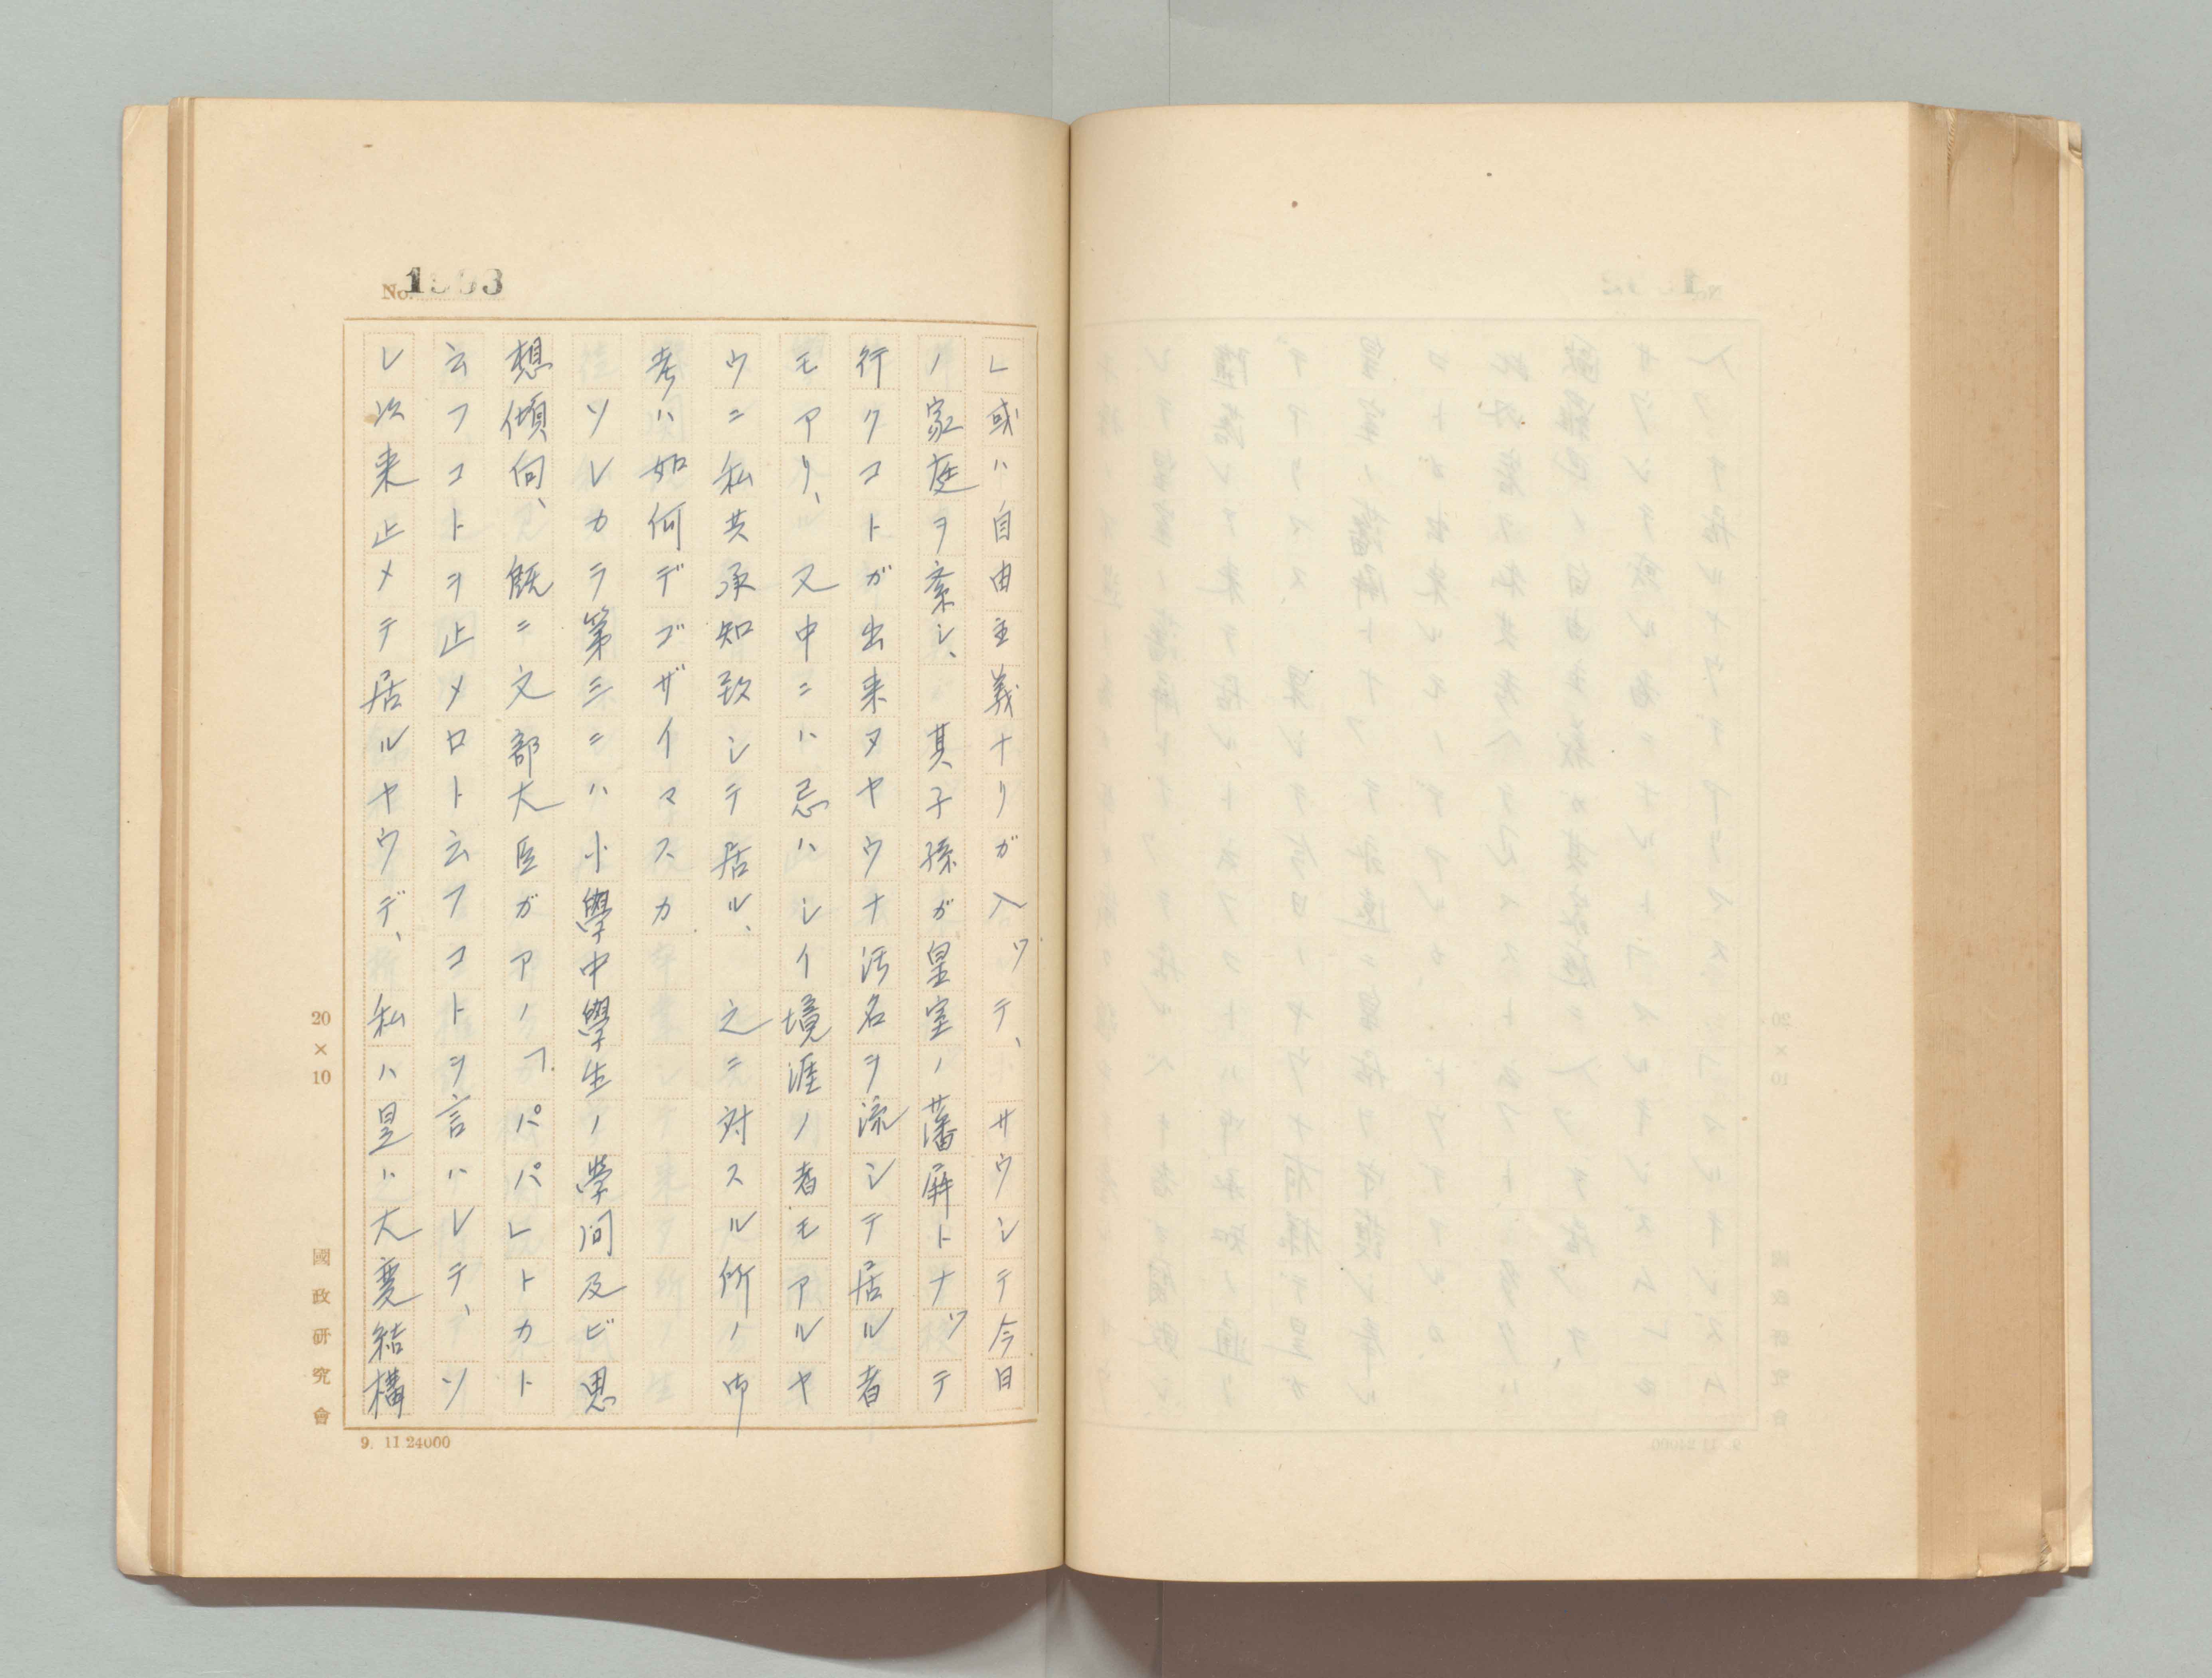 No. 1993
レ或ハ自由主義ナリガ入ッテ、サウシテ今日
ノ家庭ヲ紊シ、其子孫ガ皇室ノ藩屏トナッテ
行クコトガ出来ヌヤウナ汚名ヲ流シテ居ル者
モアリ、又中ニハ忌ハシイ境涯ノ者モアルヤ
ウニ私共承知致シテ居ル、之ニ対スル所ノ御
考ハ如何デゴザイマスカ
ソレカラ第三ニハ小學中學生ノ學问及ビ思
想傾向、既ニ文部大臣ガアノ「パパレトカト
云フコトヲ止メロト云フコトヲ言ハレテ、ソ
レ以来止メテ居ルヤウデ、私ハ是ハ大変結構
20×10
國政研究會
9. 11.24000